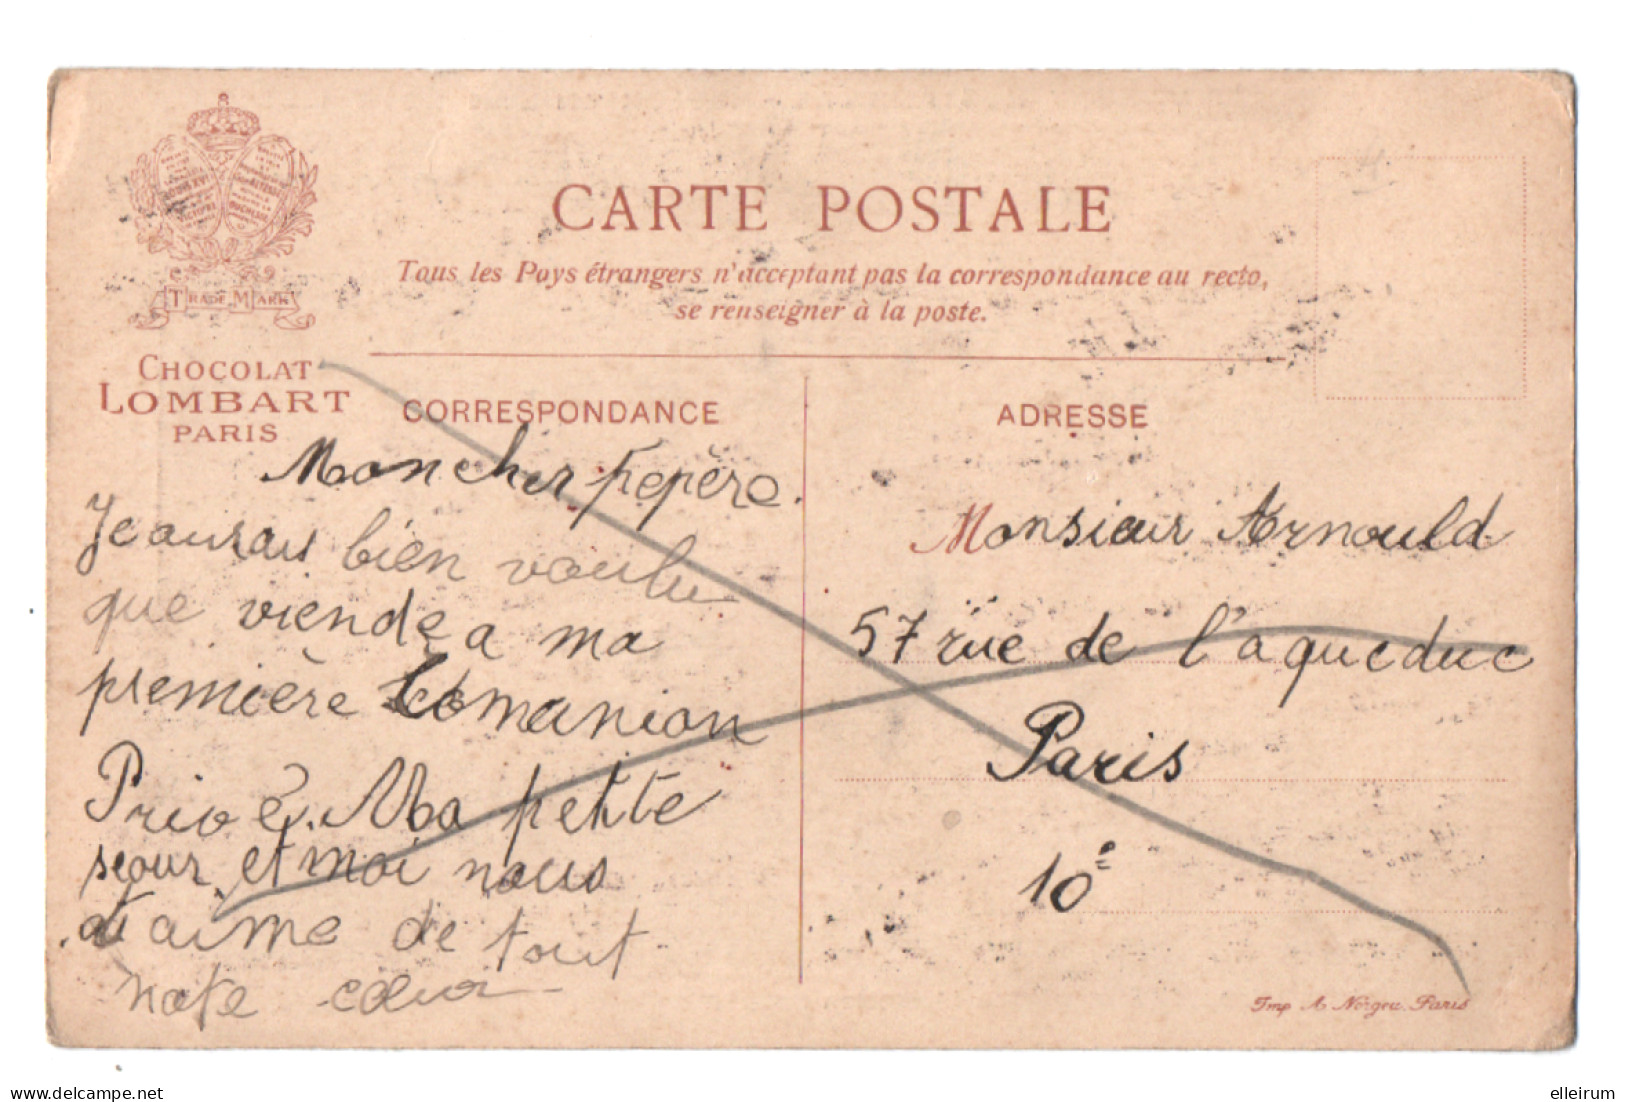 CARTE POSTALE
Tous les Pays étrangers n'acceptant pas la correspondance au recto,
se renseigner à la poste.
TRADE MARK
CHOCOLAT
LOMBART
PARIS
CORRESPONDANCE
Mon cher pepère.
Je aurais bien voulu
que viende a ma
première Comanion
Privé. Ma petite
seour et moi nous
t'aime de tout
note cœur
ADRESSE
Monsieur Arnould
57 rue de l'aqueduc
Paris
10e
Imp A. Norgeu. Paris
delcampe.net
elleirum